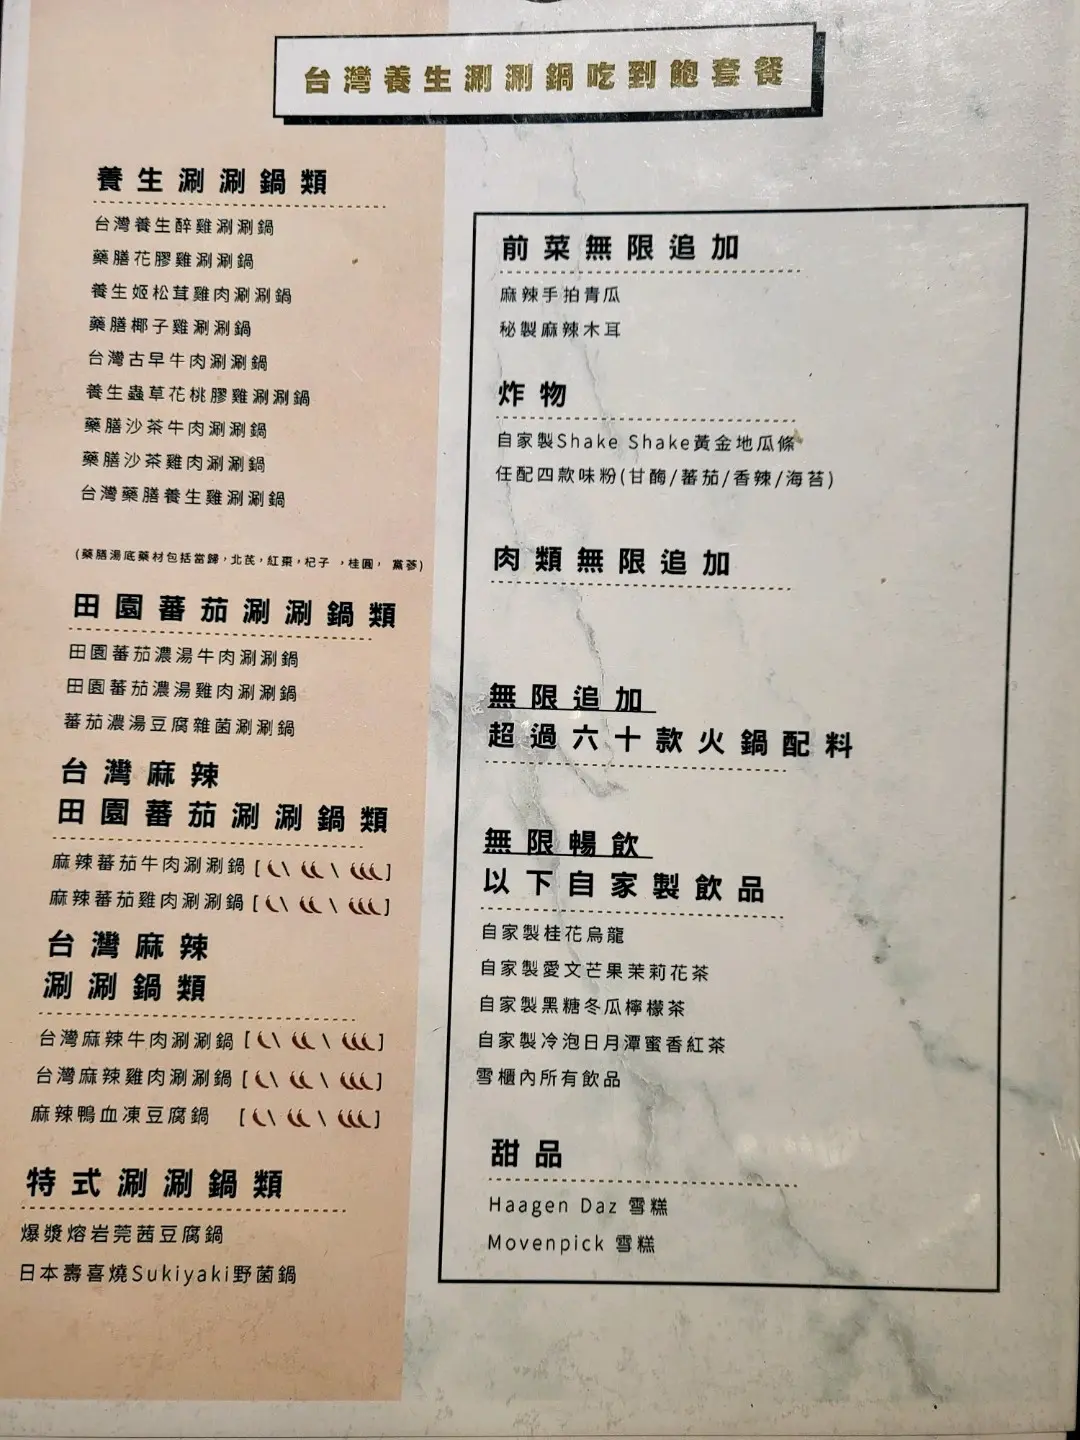 台灣養生涮涮鍋吃到飽套餐
養生涮涮鍋類
台灣養生醉雞涮涮鍋
藥膳花膠雞涮涮鍋
養生姬松茸雞肉涮涮鍋
藥膳椰子雞涮涮鍋
台灣古早牛肉涮涮鍋
養生蟲草花桃膠雞涮涮鍋
藥膳沙茶牛肉涮涮鍋
藥膳沙茶雞肉涮涮鍋
台灣藥膳養生雞涮涮鍋
(藥膳湯底藥材包括當歸，北芪，紅棗，杞子 ，桂圓， 黨蔘)
田園蕃茄涮涮鍋類
田園蕃茄濃湯牛肉涮涮鍋
田園蕃茄濃湯雞肉涮涮鍋
蕃茄濃湯豆腐雜菌涮涮鍋
台灣麻辣
田園蕃茄涮涮鍋類
麻辣蕃茄牛肉涮涮鍋 [ \ \ ]
麻辣蕃茄雞肉涮涮鍋 [ \ \ ]
台灣麻辣
涮涮鍋類
台灣麻辣牛肉涮涮鍋 [ \ \ ]
台灣麻辣雞肉涮涮鍋 [ \ \ ]
麻辣鴨血凍豆腐鍋 [ \ \ ]
特式涮涮鍋類
爆漿熔岩莞茜豆腐鍋
日本壽喜燒Sukiyaki野菌鍋
前菜無限追加
麻辣手拍青瓜
秘製麻辣木耳
炸物
自家製Shake Shake黃金地瓜條
任配四款味粉(甘酶/蕃茄/香辣/海苔)
肉類無限追加
無限追加
超過六十款火鍋配料
無限暢飲
以下自家製飲品
自家製桂花烏龍
自家製愛文芒果茉莉花茶
自家製黑糖冬瓜檸檬茶
自家製冷泡日月潭蜜香紅茶
雪櫃內所有飲品
甜品
Haagen Daz 雪糕
Movenpick 雪糕